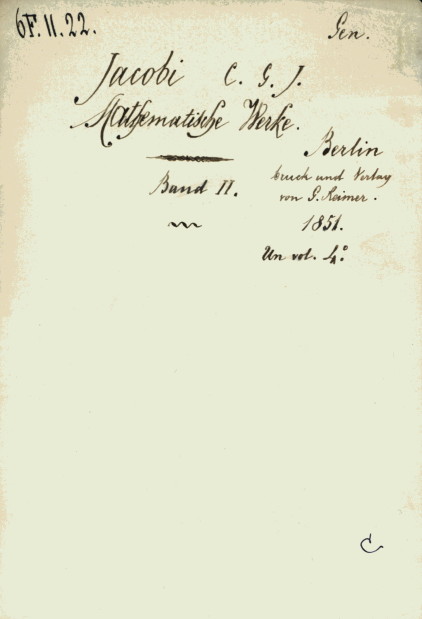 6F.II.22.
Gen.
Jacobi C. G. J.
Mathematische Werke.
Berlin
Band II.
Druck und Verlag
von G. Reimer.
1851.
Un vol. 4°
C